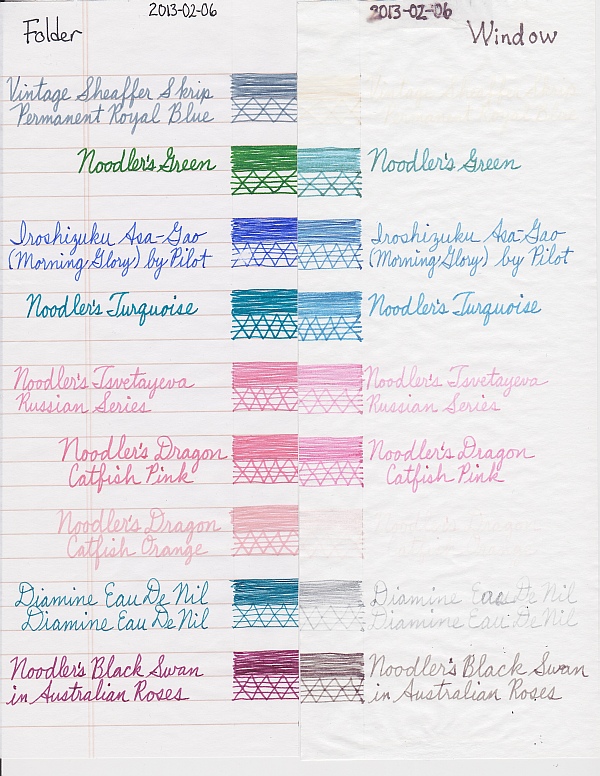 2013-02-06
Folder
Vintage Sheaffer Skrip
Permanent Royal Blue
Noodler's Green
Iroshizuku Asa-Gao
(Morning Glory) by Pilot
Noodler's Turquoise
Noodler's Tsvetayeva
Russian Series
Noodler's Dragon
Catfish Pink
Noodler's Dragon
Catfish Orange
Diamine Eau De Nil
Diamine Eau De Nil
Noodler's Black Swan
in Australian Roses
2013-02-06
Window
Noodler's Green
Iroshizuku Asa-Gao
(Morning Glory) by Pilot
Noodler's Turquoise
Noodler's Tsvetayeva
Russian Series
Noodler's Dragon
Catfish Pink
Diamine Eau De Nil
Diamine Eau De Nil
Noodler's Black Swan
in Australian Roses